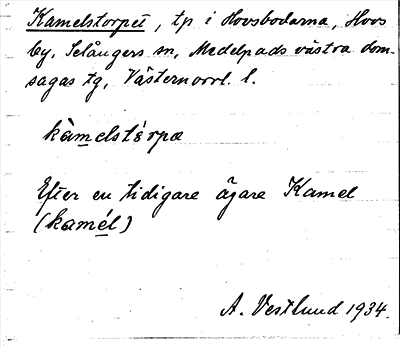 Kamelstorpet, tp i Hovsbodarna, Hovs
by, Selångers sn, Medelpads västra dom-
sagas tg, Västernorrl. l.
kàmelstèrpæ
Efter en tidigare ägare Kamel
(kamél)
A. Vestlund 1934.